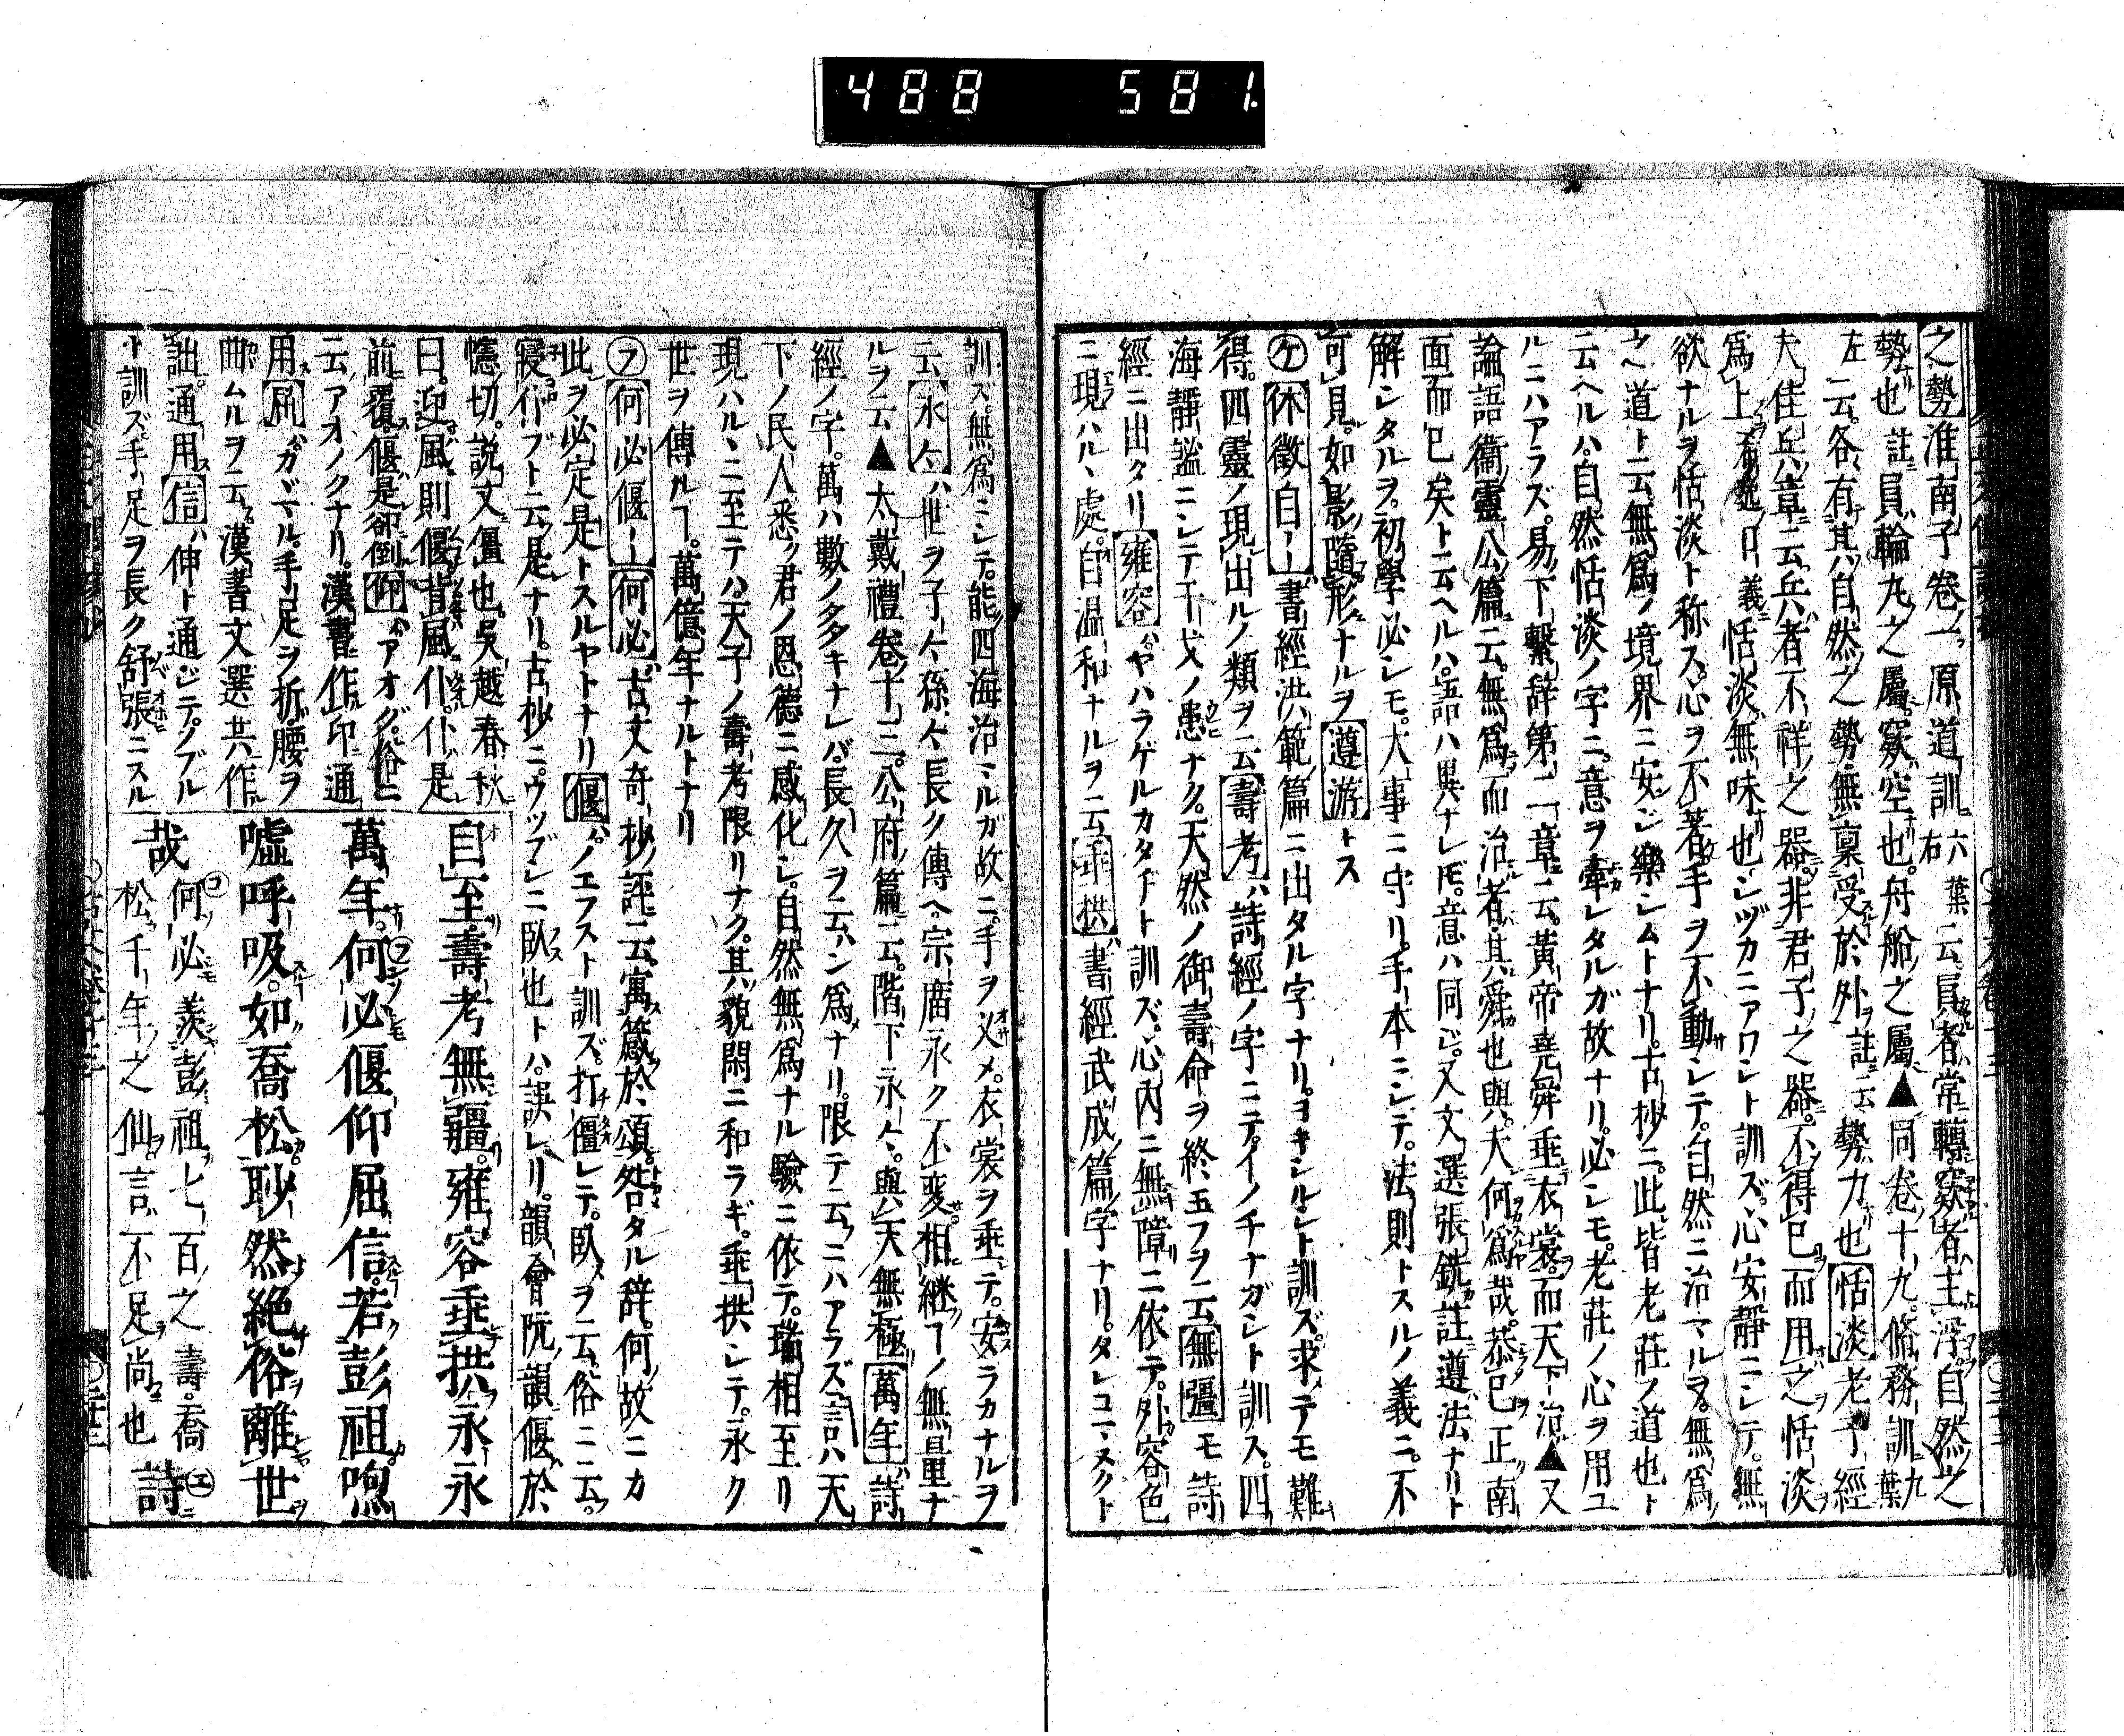 488 581.
之勢淮南子卷一原道訓六葉右云員者常轉窾者主浮自然之
勢也註員輪丸之屬窾空也舟船之屬▲同卷十九脩務訓九葉
左云各有其自然之勢無稟受於外註云勢力也恬淡老子經
夫佳兵章云兵者不祥之器非君子之器不得已而用之恬淡
爲上 曰義恬淡無味也シヅカニアワシト訓ズ心安靜ニシテ無
欲ナルヲ恬淡ト称ス心ヲ不著手ヲ不動シテ自然ニ治マルヲ無爲
之道ト云無爲ノ境界ニ安ジ樂シムトナリ古抄ニ此皆老莊ノ道也ト
云ヘルハ自然恬淡ノ字ニ意ヲ牽レタルガ故ナリ必シモ老莊ノ心ヲ用ユ
ルニハアラズ易下繫辞第二章云黃帝堯舜垂衣裳而天下治▲又
論語衞靈公篇云無爲而治者其舜也與夫何爲哉恭已正南
面而已矣ト云ヘルハ語ハ異ナレ𪜈意ハ同ジ又文選張銑註遵法ナリト
解シタルヲ初學必シモ大事ニ守リ手本ニシテ法則トスルノ義ニ不
可見如影隨形ナルヲ遵游トス
ケ休徵自ー書經洪範篇ニ出タル字ナリヨキシルシト訓ズ求テモ難
得四靈ノ現出ルノ類ヲ云壽考詩經ノ字ニテイノチナガシト訓ス四
海靜謐ニシテ干戈ノ患ナク天然ノ御壽命ヲ終玉フヲ云無彊モ詩
經ニ出タリ雍容ヤハラゲルカタチト訓ズ心內ニ無障ニ依テ外容色
ニ現ハルヽ處自温和ナルヲ云垂拱書經武成篇字ナリタレコマヌクト
訓ズ無爲ニシテ能四海治マルガ故ニ手ヲ乂メ衣裳ヲ垂テ安ラカナルヲ
云永々世ヲ子々孫々長ク傳ヘ宗庿永ク不変相継フノ無量ナ
ルヲ云▲大戴禮卷十三公府篇云階下永々與天無極萬年詩
經ノ字萬ハ數ノ多キナレバ長久ヲ云ハン爲ナリ限テ云ニハアラズ言ハ天
下ノ民人悉ク君ノ恩德ニ感化シ自然無爲ナル驗ニ依テ瑞相至リ
現ハルヽニ至テハ天子ノ壽考限リナク其貌閑ニ和ラギ垂拱シテ永ク
世ヲ傳ルヿ萬億年ナルトナリ
フ何必偃ー何必古文奇抄評云寓箴於頌咎タル辞何故ニカ
此ヲ必定是トスルヤトナリ偃ハノエフスト訓ズ打僵レテ臥ヲ云俗ニ云
寝仆ブト云是ナリ古抄ニウツブシニ臥也トハ誤レリ韻會阮韻偃於
幰切說文僵也吳越春秋
曰迎風則偃背風仆仆是
前覆偃是卻倒仰アオグ俗ニ
云アオノクナリ漢書作卬通
用屈カヾマル手足ヲ折腰ヲ
曲ムルヲ云漢書文選共作
詘通用信伸ト通ジテノブル
ト訓ズ手足ヲ長ク舒張ニスル
自至壽考無疆雍容垂拱永永
萬年何必偃仰屈信若彭祖呴
噓呼吸如喬松眇然絶俗離世
哉何必羨彭祖七百之壽喬
松千年之仙言不足尚也詩